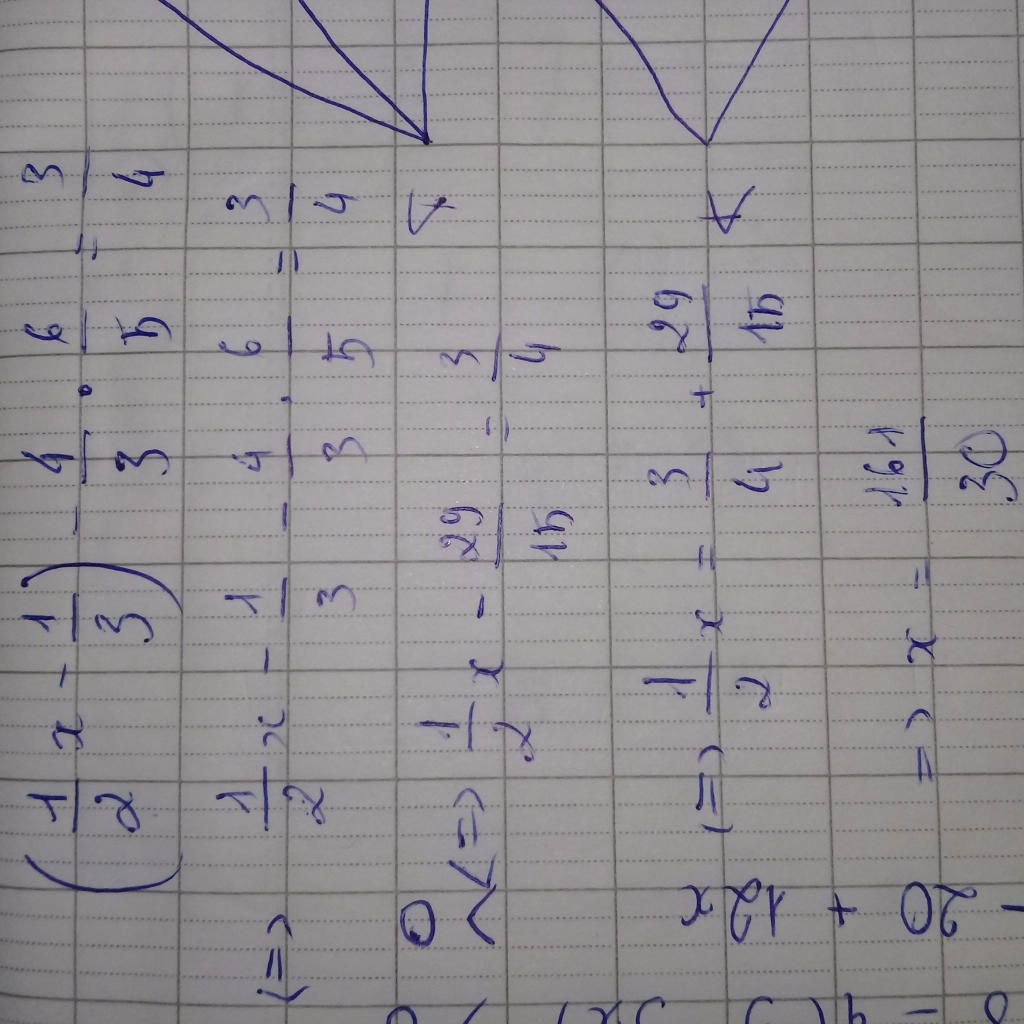 (1/2 x - 1/3) - 4/3 · 6/5 = 3/4
<=> 1/2 x - 1/3 - 4/3 · 6/5 = 3/4
<=> 1/2 x - 29/15 = 3/4
<=> 1/2 x = 3/4 + 29/15
=> x = 161/30
- 20 + 12x
< 0